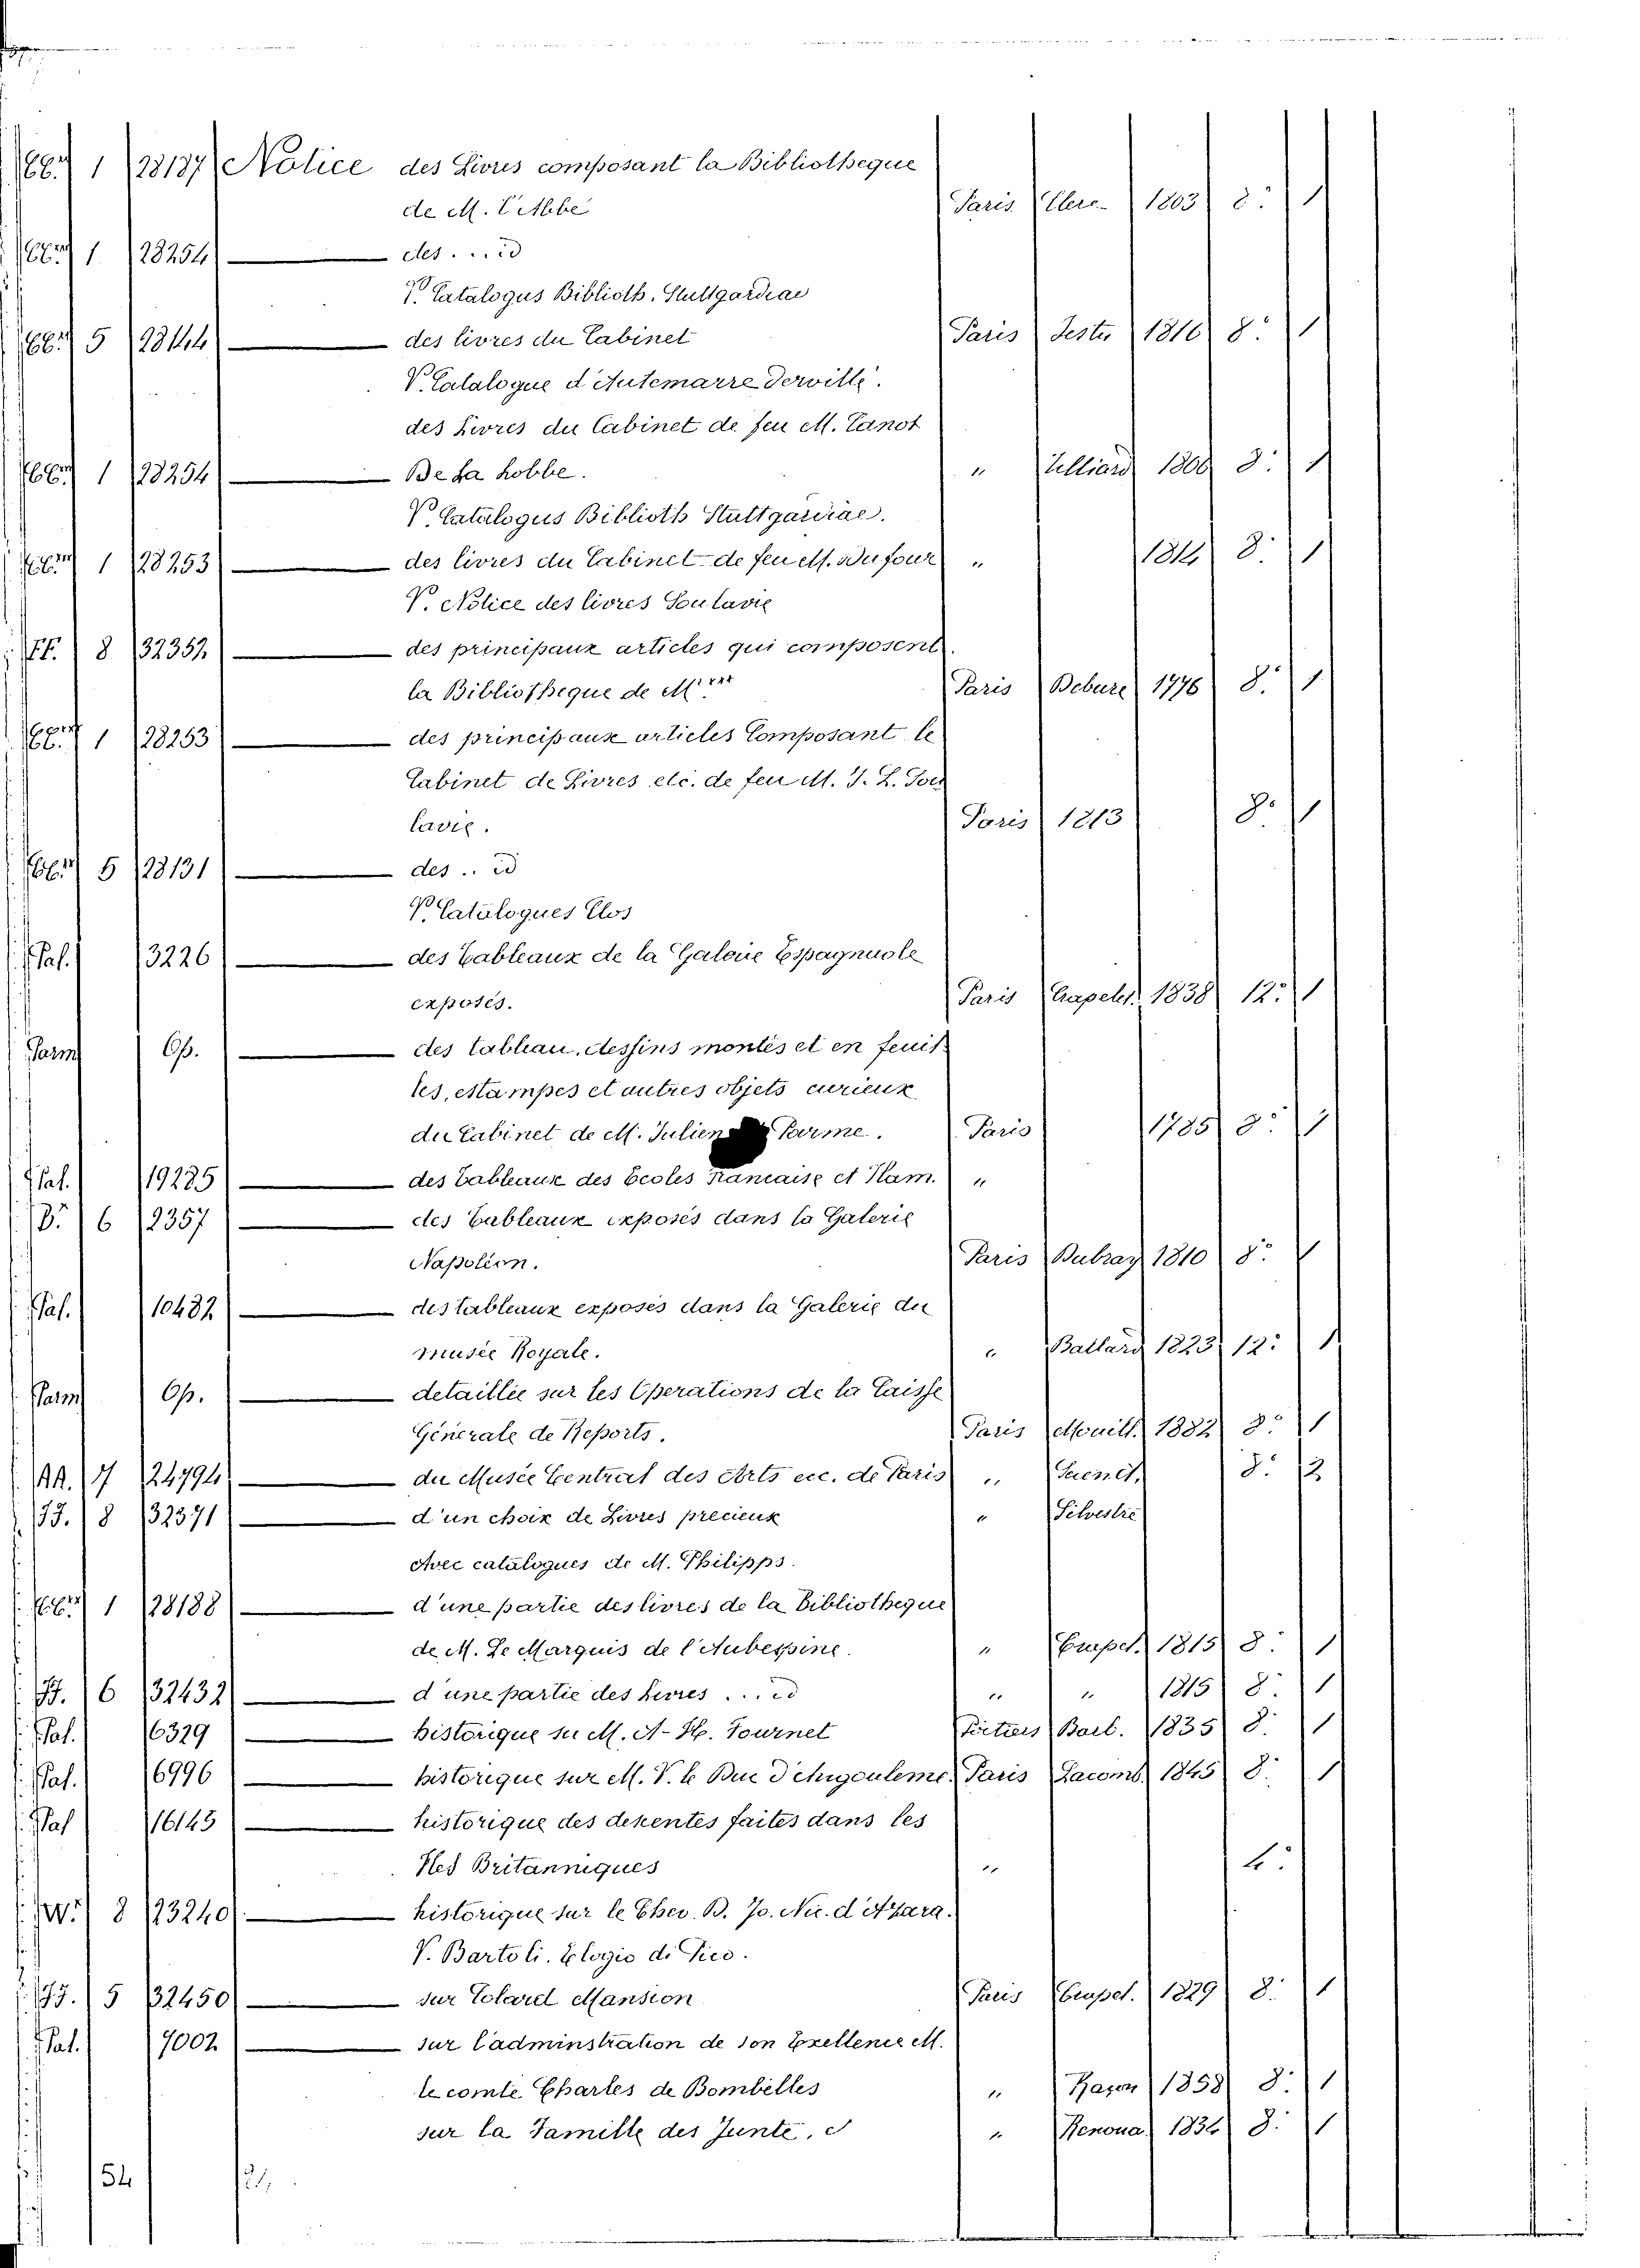 1 28187 Notice des Livres composant la Bibliotheque
de M. l'Abbé Paris Clere 1803 8.° 1
1 28254 — des .... id
V. Catalogus Biblioth. Stuttgardiae
5 28144 — des livres du Cabinet Paris Testu 1816 8.° 1
V. Catalogue d'Autemarre Derville.
des Livres du Cabinet de feu M. Canot
1 28254 — De La hobbe. " Tilliard 1809 8.° 1
V. Catalogus Biblioth Stuttgardiae.
1 28253 — des livres du Cabinet de feu M. Dufour " 1814 8.° 1
V. Notice des livres Soulavie
8 32352 — des principaux articles qui composent
la Bibliotheque de M Paris Debure 1776 8.° 1
1 28253 — des principaux articles Composant le
Cabinet de Livres etc. de feu M. J. L. Sou
lavie. Paris 1813 8.° 1
5 28131 — des .. id
V. Cataloques Clos
Pal. 3226 — des Tableaux de la Galerie Espagnuole
exposés. Paris Crapelet 1838 12.° 1
Parm Op. — des tableau, dessins montés et en feuil
les, estampes et autres objets curieux
du Cabinet de M. Julien Parme. Paris 1785 8.° 1
Pal. 19285 — des Tableaux des Ecoles Francaise et Flam. "
B. 6 2357 — des Tableaux exposés dans la Galerie
Napoléon. Paris Dubray 1810 8.° 1
Pal. 10482 — des tableaux exposés dans la Galerie du
musée Royale. " Ballard 1823 12.° 1
Parm Op. — detaillée sur les Operations de la Caisse
Génerale de Reports. Paris Mouill. 1882 8.° 1
AA. 7 24794 — du Musée Central des Arts ecc. de Paris " 8.° 2
8 32371 — d'un choix de Livres precieux " Silvestre
Avec cataloques de M. Philipps.
1 28188 — d'une partie des livres de la Bibliotheque
de M. Le Marquis de l'Aubespine. " Crapel. 1815 8.° 1
6 32432 — d'une partie des Livres .... id " " 1815 8.° 1
Pal. 6329 — historique su M. A-H. Tournet Poitiers Barb. 1835 8.° 1
Pal. 6996 — historique sur M. V. le Duc d'Angouleme. Paris Lacomb. 1845 8.° 1
Pal 16145 — historique des dekentes faites dans les
Iles Britanniques " 4.°
W. 8 23240 — historique sur le Chev. B. Jo. Nic. d'Azara.
V. Bartoli. Elogio di Pico.
5 32450 — sur Colard Mansion Paris Crapel. 1829 8.° 1
Pal. 7002 — sur l'adminstration de son Exellence M.
le comte Charles de Bombelles " 1858 8.° 1
sur la Famille des Junte, " Renoua. 1834 8.° 1
54